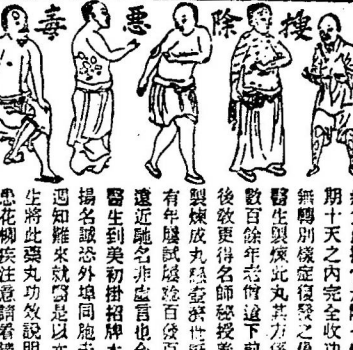 搜除惡毒
期十天之內完全收功
無轉別樣症復發之
醫生製煉此丸其方係
數百餘年老僧遺下
後敎更得名師秘授
製煉成丸
有年屢試屢騐百發百
遠近馳名非虛言也
醫生到美初掛招牌
揚名誠恐外埠同胞
週知難來就醫是以
生將此藥丸功效說明
患花柳疾注意請看